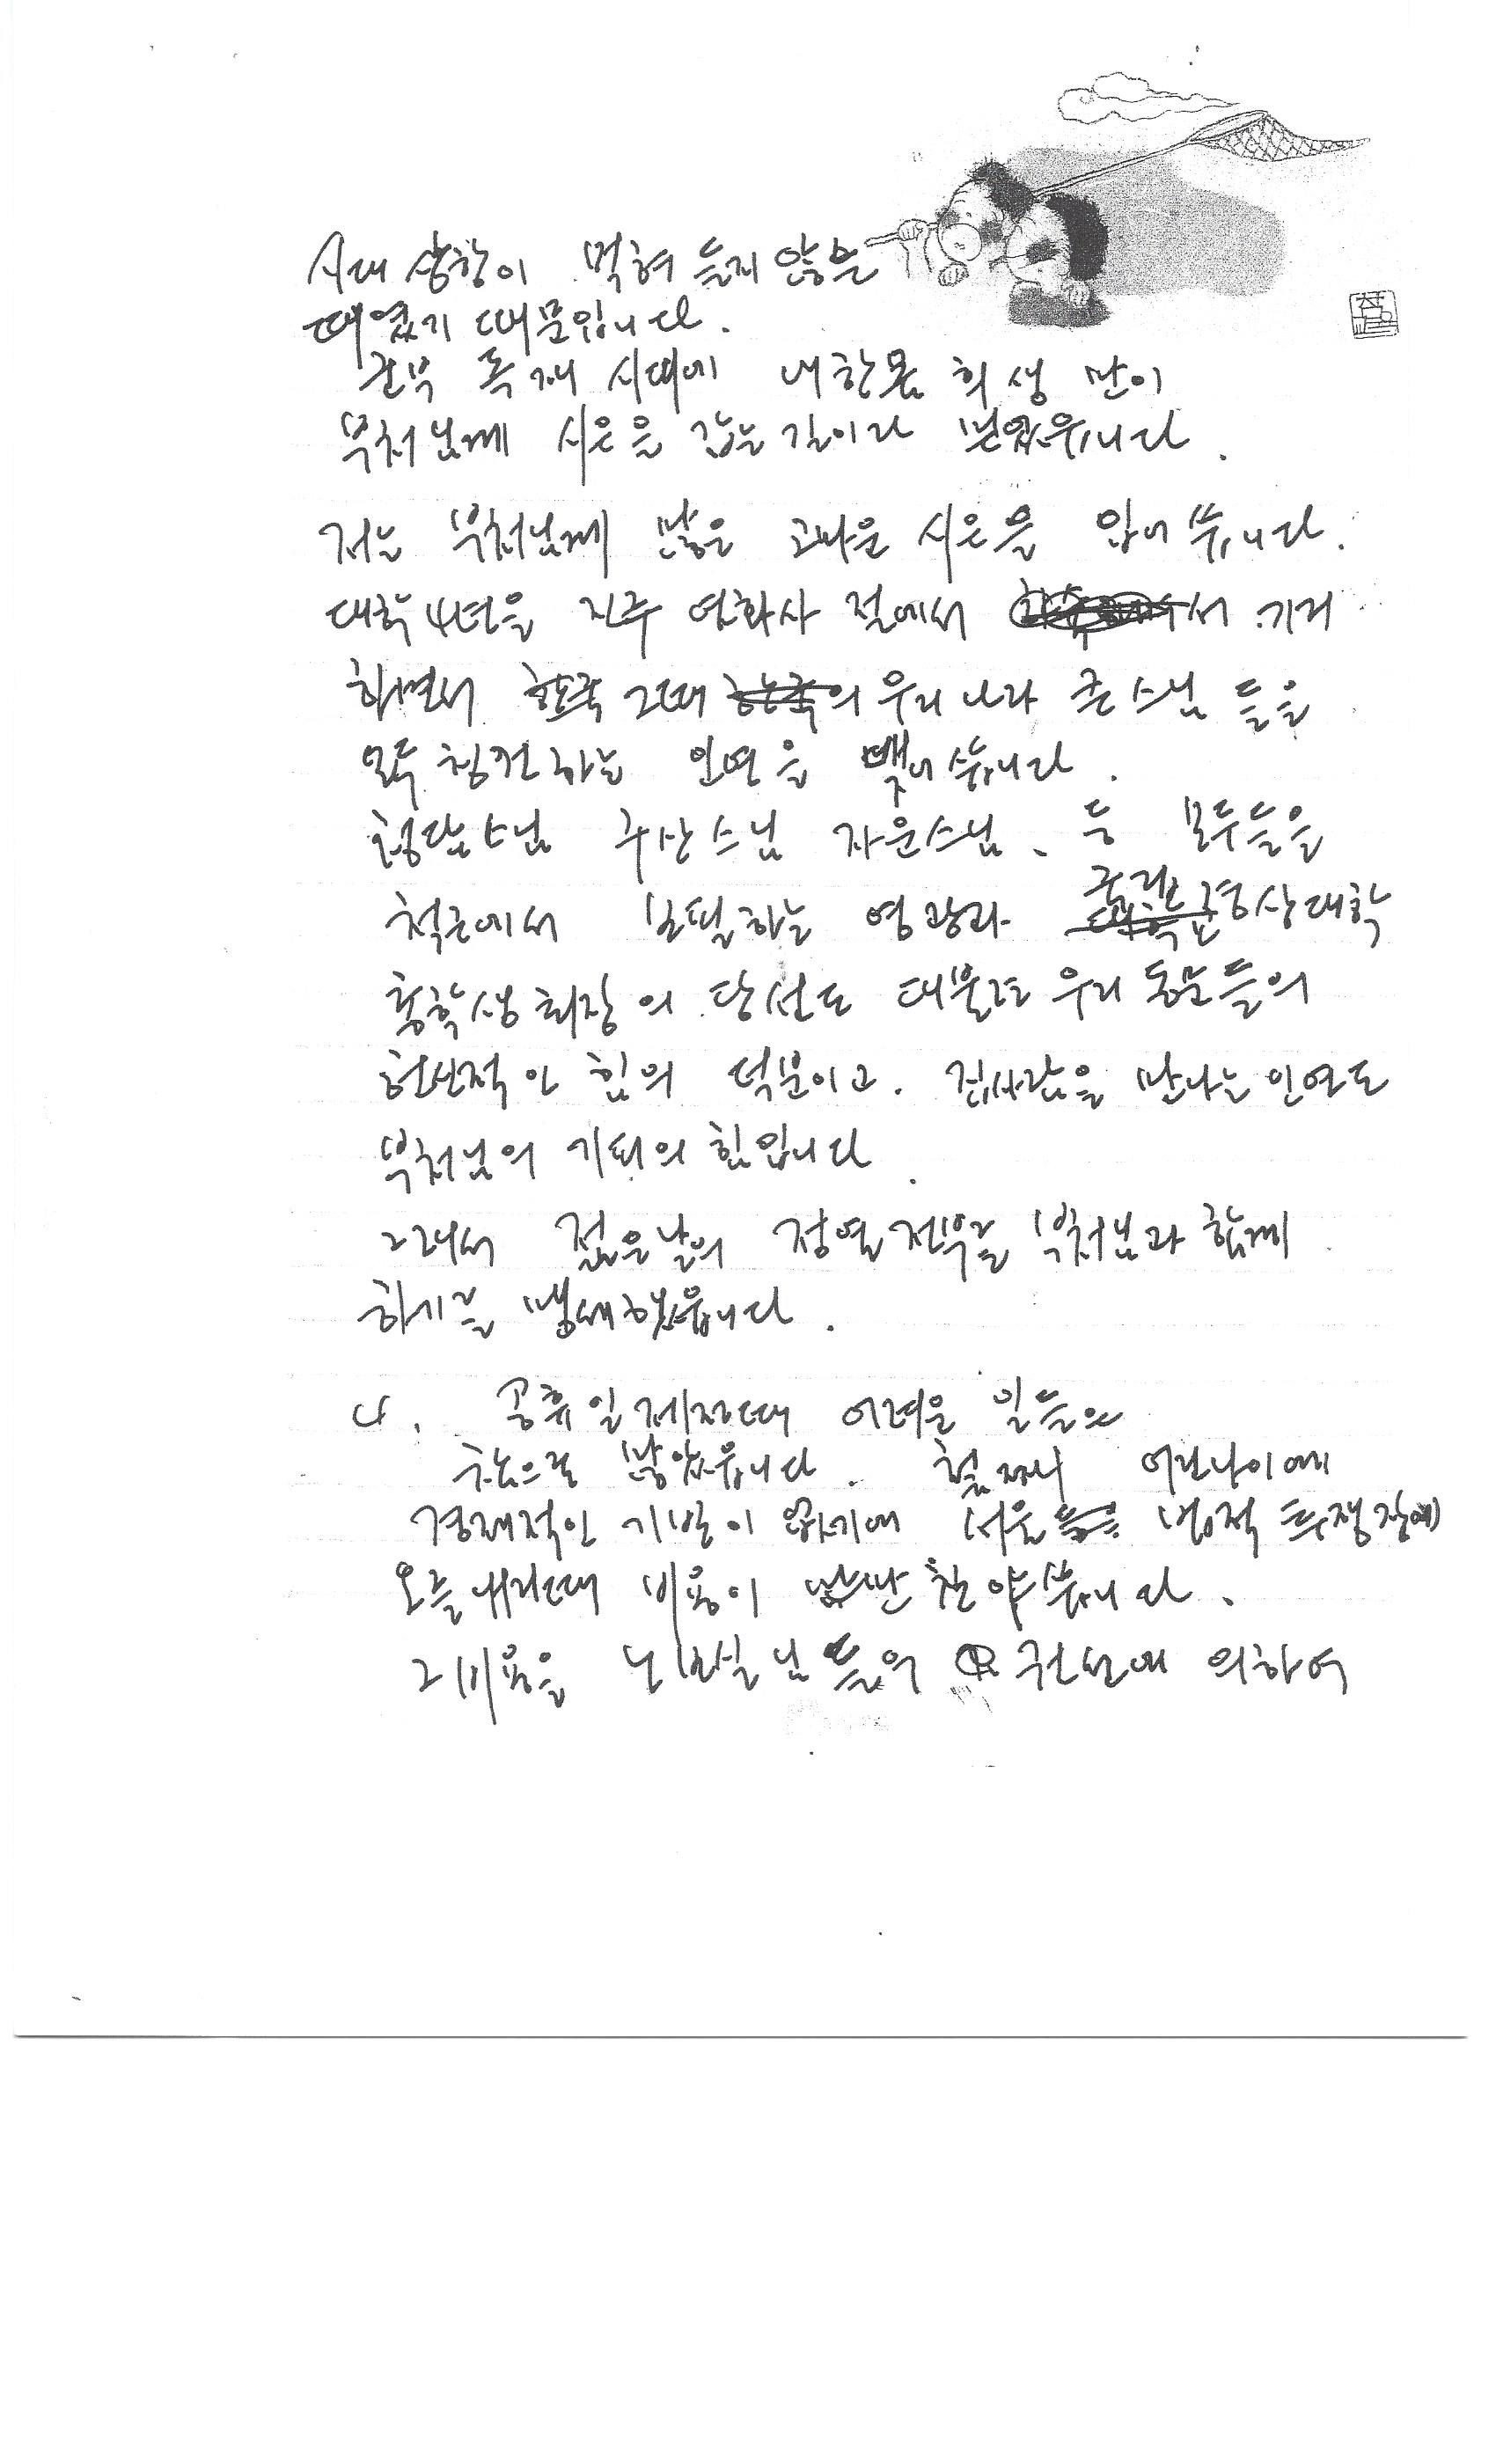 시대 상황이 먹혀 들지 않을
때였기 때문입니다.
군부 독재 시대에 내한몸 희생 만이
부처님께 시은을 갚는길이라 믿었습니다.
저는 부처님께 많은 고마운 시은을 입어습니다.
대학 4년을 진주 연화사 절에서 기거
하면서 그때 우리나라 큰스님 들을
모두 친견하는 인연을 맺어습니다.
청담스님 구산스님 자운스님、등 모두들을
척근에서 보필하는 영광과 국립 경상대학
총학생회장의 당선도 대불련 우리 동문들의
헌신적인 힘의 덕분이고. 집사람을 만나는 인연도
부처님의 가피의 힘입니다.
그래서 젊은날의 정열 전부를 부처님과 함께
하기를 맹세했습니다.
나. 공휴일제정때 어려운 일들은
참으로 많았습니다. 첫째 어린나이에
경제적인 기반이 없기에 서울 법적 투쟁장에
오르내리때 비용이 만만찮아습니다.
그비용을 노보살님들의 권선에 의하여